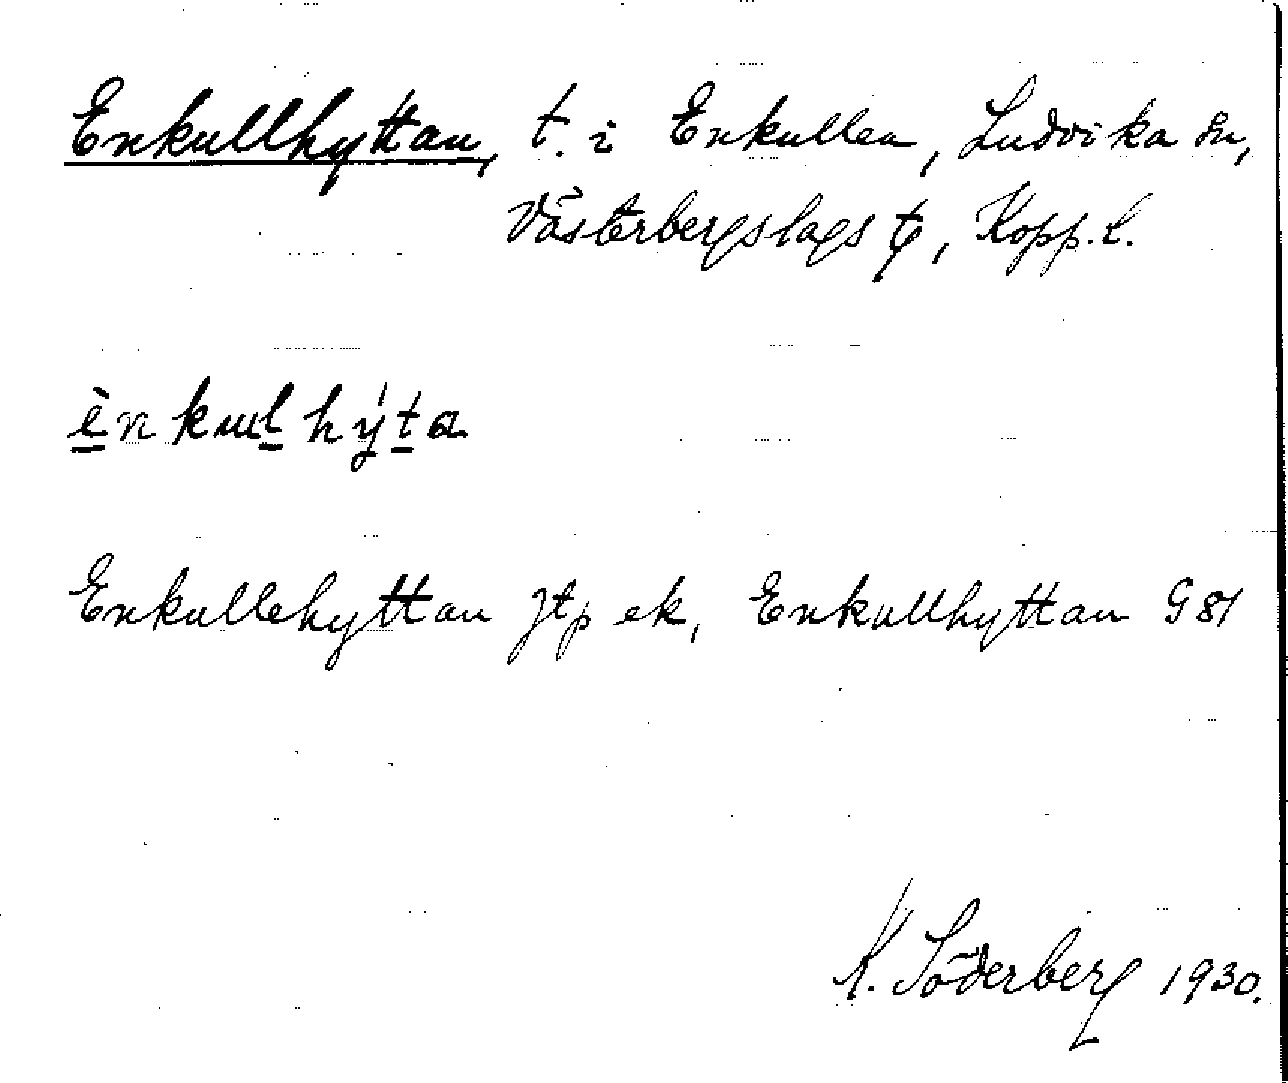 Enkullhyttan, t. i Enkullen, Ludvika sn,
Västerbergslags tg, Kopp. l.
ènkɯlhýta
Enkullehyttan Jtp ek, Enkullhyttan G 81
K. Söderberg 1930.